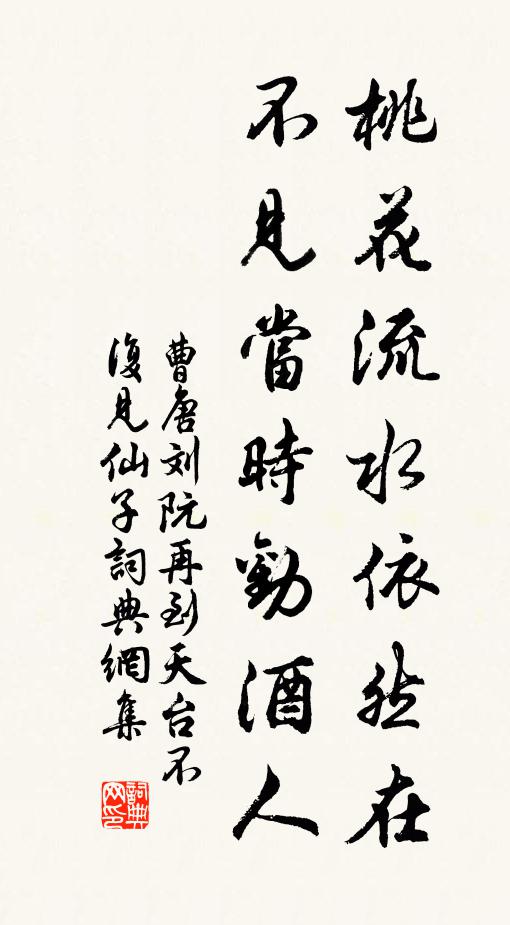 桃花流水依然在
不見當時勸酒人
曹唐刘阮再到天台不
復見仙子詞典網集
詞典网印